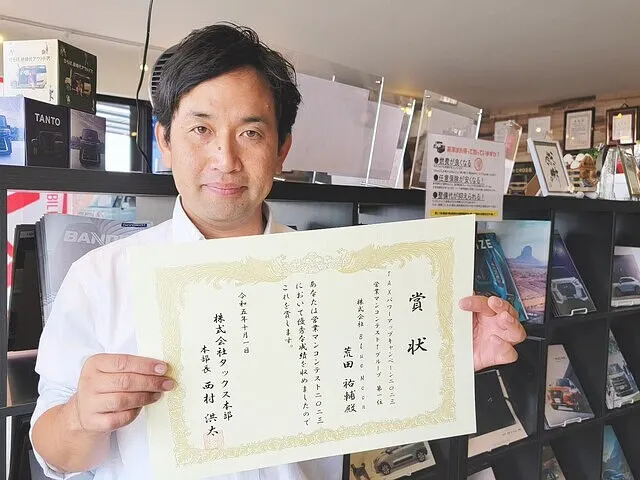 賞状
TAXパワーアップキャンペーン二〇二三
営業マンコンテスト一グループ 第一位
株式会社 BlueMoon
荒田 祐輔殿
あなたは営業マンコンテスト二〇二三
において優秀な成績を収めましたので
これを賞します。
令和五年十月一日
株式会社タックス本部
本部長 西村 洪太
TANTO
●燃費が良くなる
●任意保険が安くなる!
●整備代が抑えられる!